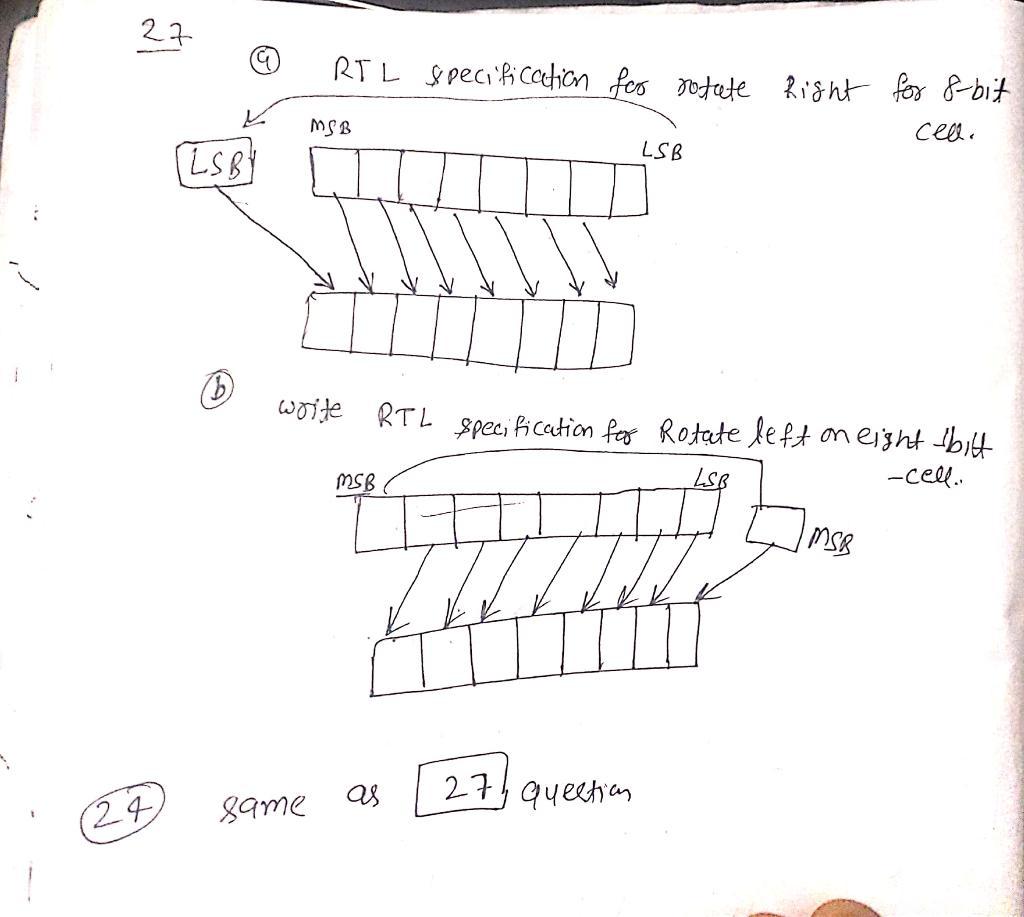 27
a RTL specification for rotate Right for 8-bit
cell.
MSB
LSB
LSB
b write RTL specification for Rotate left on eight 1bit
-cell..
MSB
LSB
MSB
24 same as 27 question